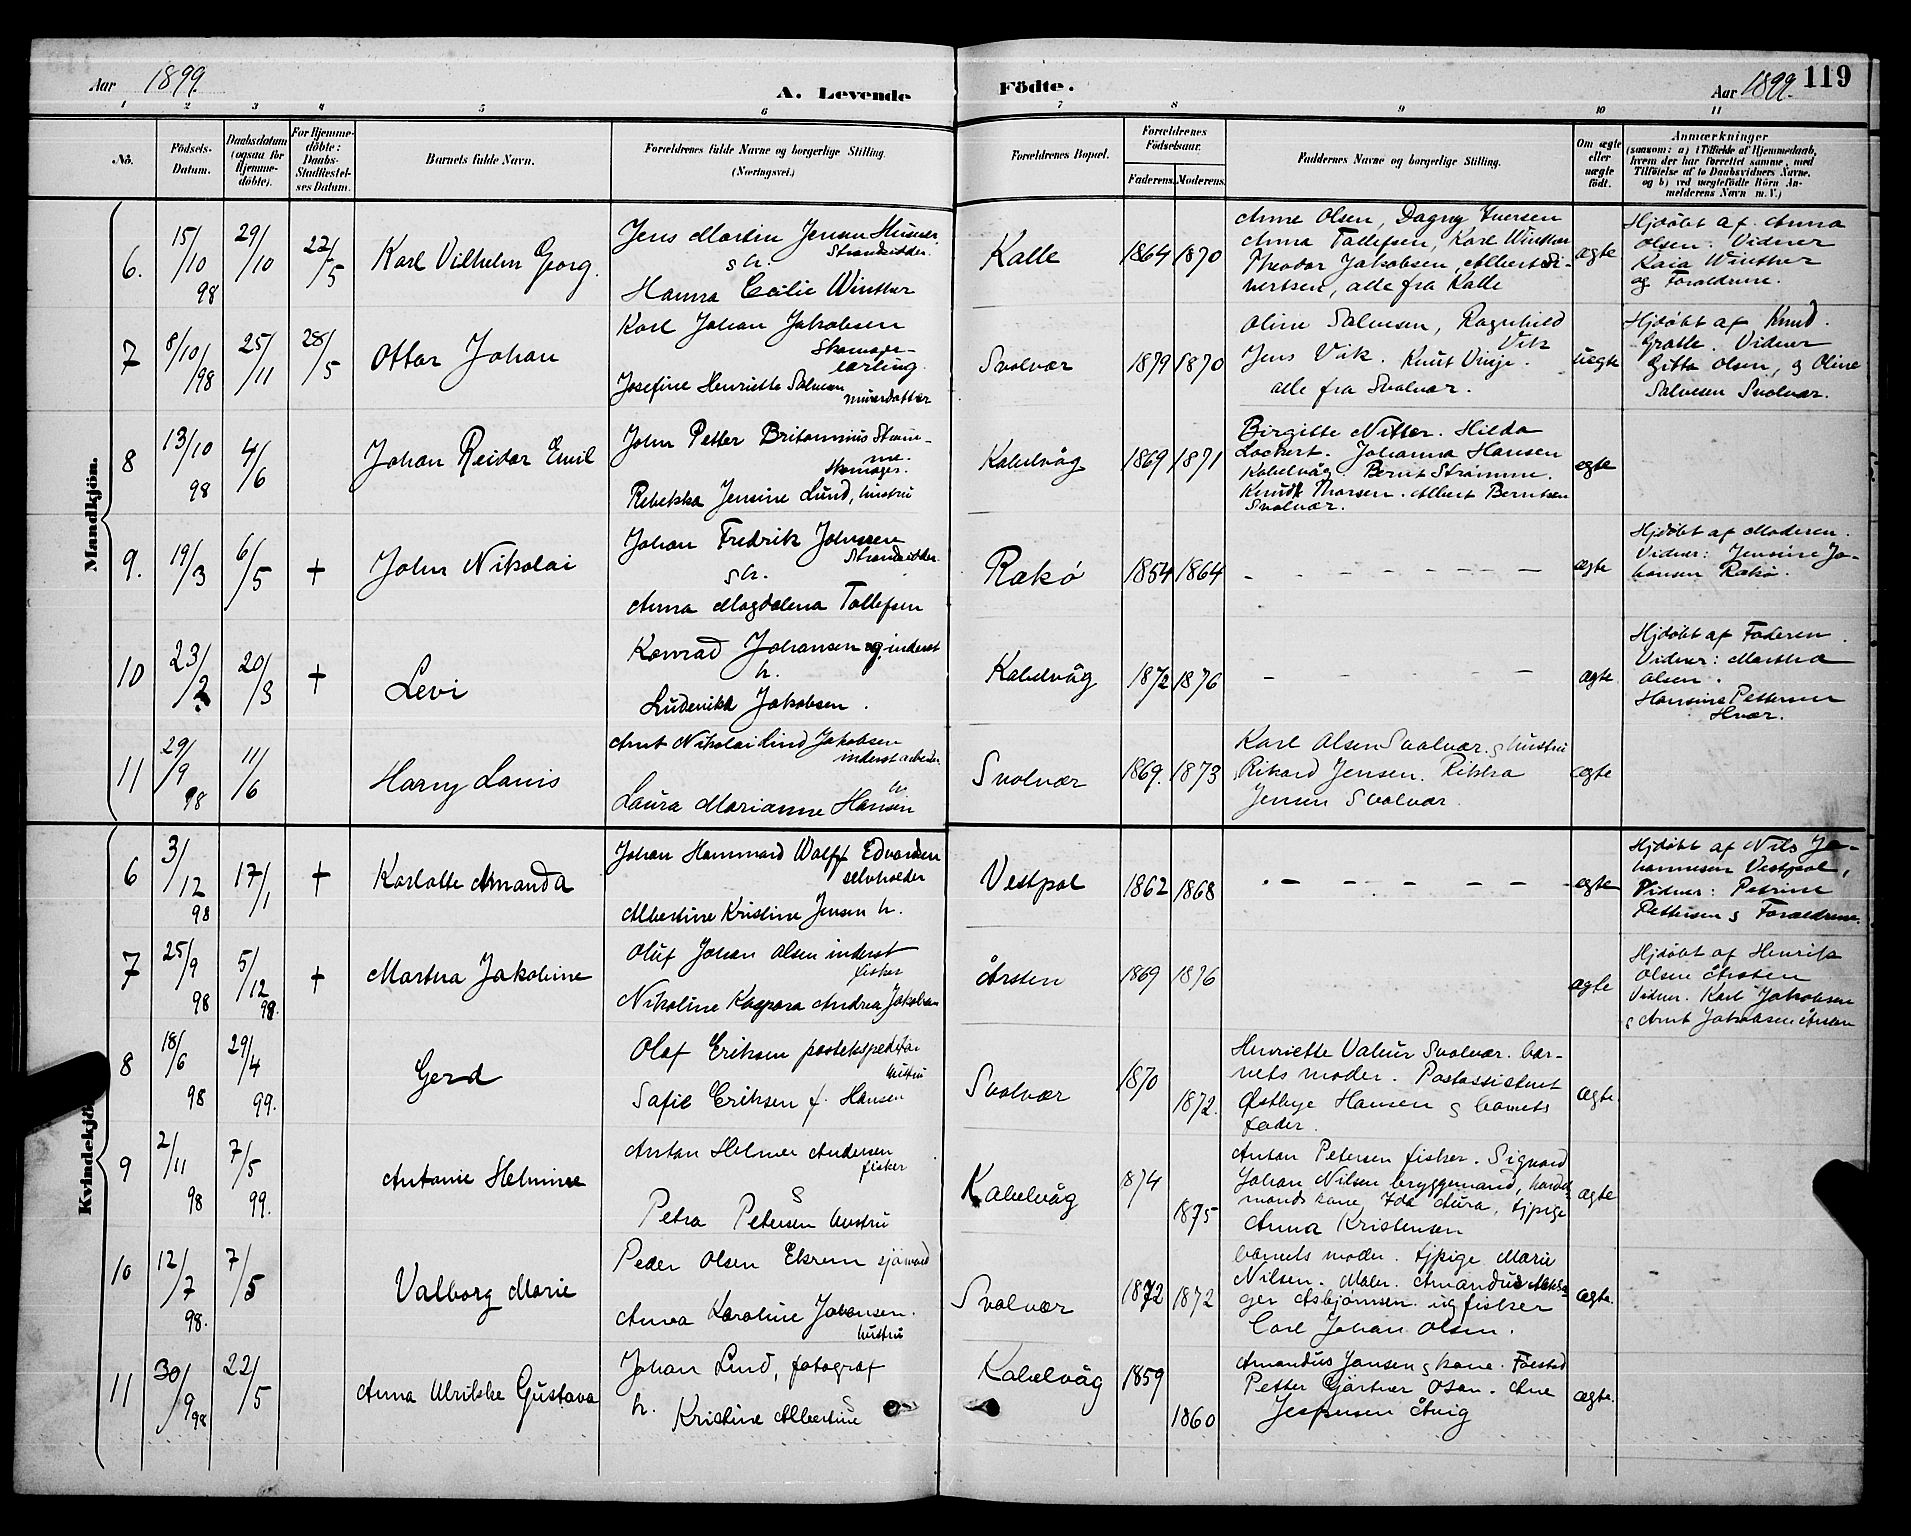 Aar 1899.
A. Levende Födte.
Aar 1899. 119
1 2 3 4 5 6 7 8 9 10 11
No.
Födsels-Datum.
Daabsdatum (ogsaa for Hjemme-döbte).
For Hjemme-döbte: Daabs-Stadfæstel-ses Datum.
Barnets fulde Navn.
Forældrenes fulde Navne og borgerlige Stilling. (Næringsvei.)
Forældrenes Bopæl.
Forældrenes Födselsaar.
Faderens. Moderens.
Faddernes Navne og borgerlige Stilling.
Om ægte eller uægte födt.
Anmærkninger
(saasom: a) i Tilfælde af Hjemmedaab,
hvem der har forrettet samme, med
Tilföielse af to Daabsvidners Navne,
og b) ved uægtefödte Börn An-
melderens Navn m. V.)
Mandkjön.
6. 15/10 98 29/10 27/5 Karl Vilhelm Georg.
Jens Martin Jensen
Strandsidder
s h.
Hanna Cecilie Winther
Kalle 1864 1870
Anne Olsen, Dagny Iversen
Anna Tollefsen, Karl Winther
Theodor Jakobsen, Albert Si-
vertsen, alle fra Kalle
ægte
Hjdöbt af Anna
Olsen. Vidner
Kaia Winther
og Forældrene.
7 8/10 98 25/11 28/5 Ottar Johan
Karl Johan Jakobsen
Skomager-
lærling.
Josefine Henriette Salvesen
Svolvær 1879 1870
Oline Salvesen, Ragnhild
Vik
Jens Vik. Knut Vinje.
alle fra Svolvær.
uægte
Hjdöbt af Knud
Gratte. Vidner
Gitta Olsen, og Oline
Salvesen Svolvær.
8 13/10 98 4/6 Johan Reidar Emil
John Petter Britannius Strøm-
me.
Skomager.
Rebekka Jensine Lund, hustru
Kabelvåg 1869 1871
Birgitte Nitter. Hilda
Lockert. Johanna Hansen
Kabelvåg Bernt Strømme.
Knud Thorsen. Albert Berntsen
Svolvær.
ægte
9. 19/3 6/5 + John Nikolai
Johan Fredrik Johnsen
Strandsidder
s h.
Anna Magdalena Tollefsen
Rækø 1854 1864 ægte
Hjdöbt af Moderen.
Vidner: Jensine Jo-
hansen Rækø.
10 23/2 20/3 + Levi
Konrad Johansen inderst
h.
Ludevikka Jakobsen.
Kabelvåg 1872 1876 ægte
Hjdöbt af Faderen.
Vidner: Martha
Olsen.
Hansine Pettersen
11 29/9 98 11/6 Harry Lauis
Arnt Nikolai Lind Jakobsen
inderst arbeider
h.
Laura Marianne Hansen
Svolvær 1869. 1873
Karl Olsen Svolvær. s hustru
Rikard Jensen. Rikka
Jensen Svolvær.
ægte
Kvindekjön
6 3/12 98 17/1 + Karlotte Amanda
Johan Hammard Wolff Edvardsen
selveieder
Albertine Kristine Jensen h.
Vestpol 1862 1868 ægte
Hjdöbt af Nils Jo-
hannesen Vestpol,
Vidner: Petrine
Pettersen s Forældrene.
7 25/9 98 5/12 98. + Martha Jakobine
Oluf Johan Olsen inderst
fisker
Nikoline Kaspara Andrea Jakobsen
Årsten 1869 1876 ægte
Hjdöbt af Henrik
Olsen Årsten
Vidner. Karl Jakobsen
s Arnt Jakobsen Årsten
8 18/6 98 29/4 99. Gerd
Olaf Eriksen postekspeditør
hustru
Sofie Eriksen f. Hansen
Svolvær 1870 1872.
Henriette Valeur Svolvær. bar-
nets moder. Postassistent
Østbye Hansen s barnets
fader.
ægte.
9 2/11 98 7/5 99. Antonie Helmine
Anton Helmer Andersen
fisker
S
Petra Petersen hustru
Kabelvåg 1874 1875
Anton Petersen fisker. Sigvard
Johan Nilsen bryggemand, handel-
mands kone Ida Aura, tjpige
Anna Kristensen
ægte
10 12/7 98. 7/5 Valborg Marie
Peder Olsen Ekrem sjømand
Anna Karoline Johansen.
hustru
Svolvær 1872 1872
barnets moder. tjpige Marie
Nilsen. Maler Amandus
ger Asbjørnsen. og fisker
Carl Johan Olsen.
ægte.
11 30/9 98 22/5 Anna Ulrikke Gustava
Johan Lind, fotograf
S
h. Kristine Albertine
Kabelvåg 1859 1860
Amandus Jansen s kone.
Petter Gjærtner Osan. Ane
Jespersen Ørvig
ægte.